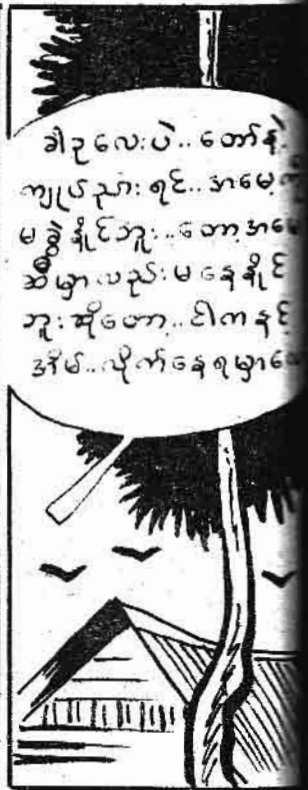 ခါဥလေးပဲ.. တော်န့်
ကျုပ်ညားရင်.. အမေ့ကို
မခွဲနိုင်ဘူး.. တော့အမေ
ဆီမှာလည်းမနေနိုင်
ဘူးဆိုတော့.. ငါကနင့်
အိမ်.. လိုက်နေရမှာပေ